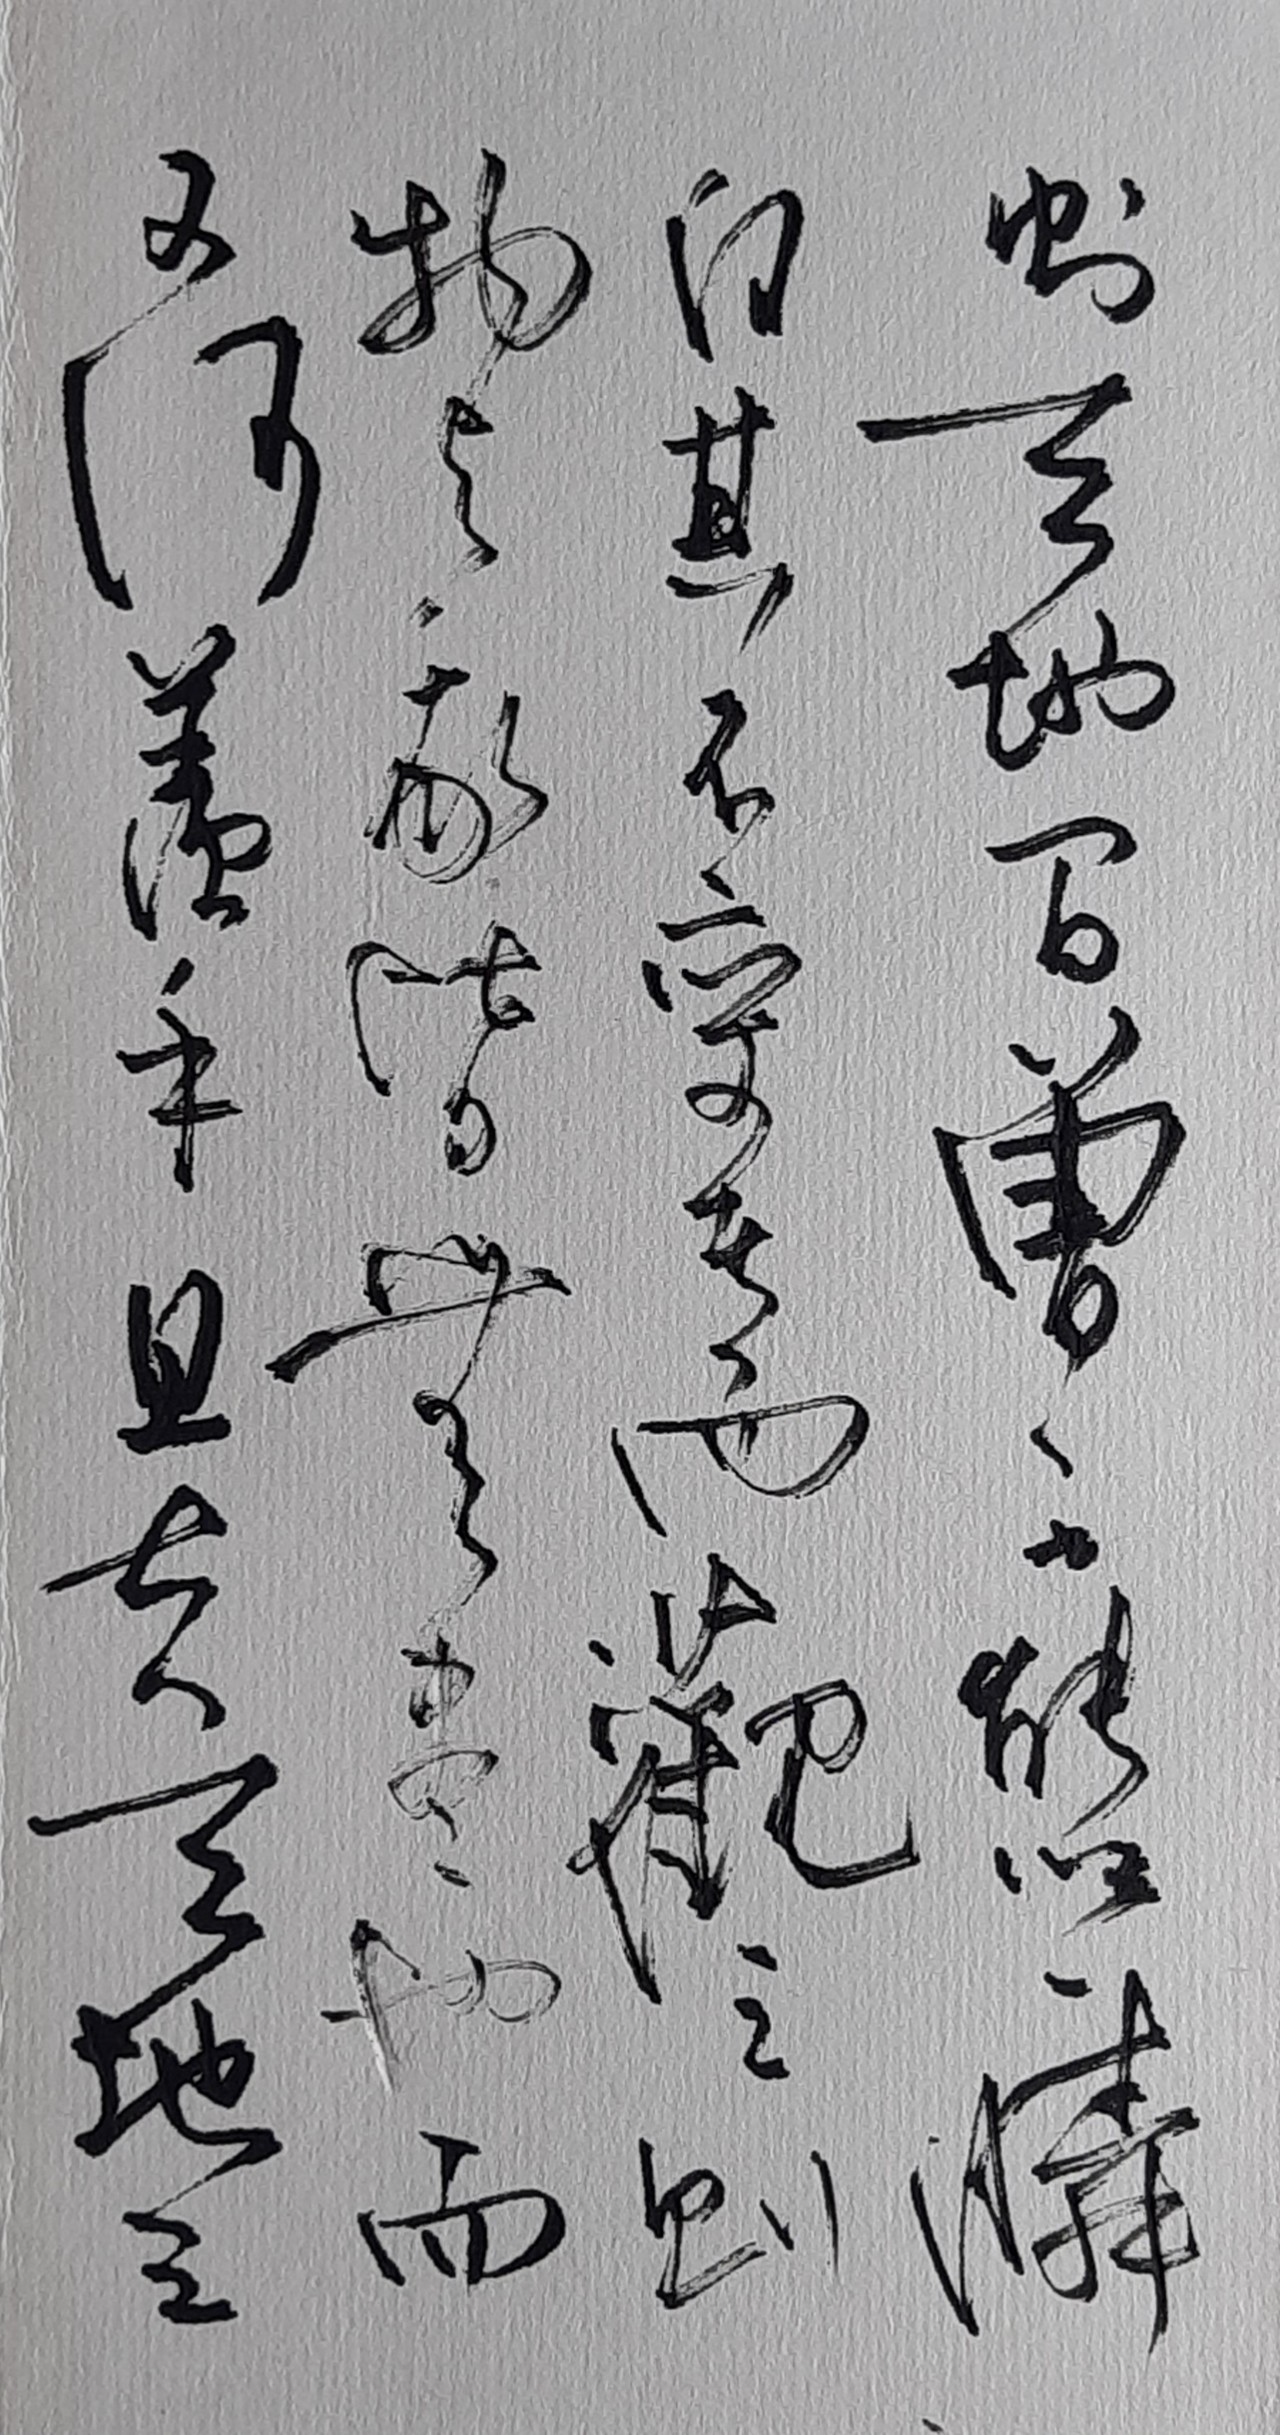 則天地間曾不能以一瞬
自其不變者而觀之則
物與我皆無盡也而
又何羨乎且夫天地之